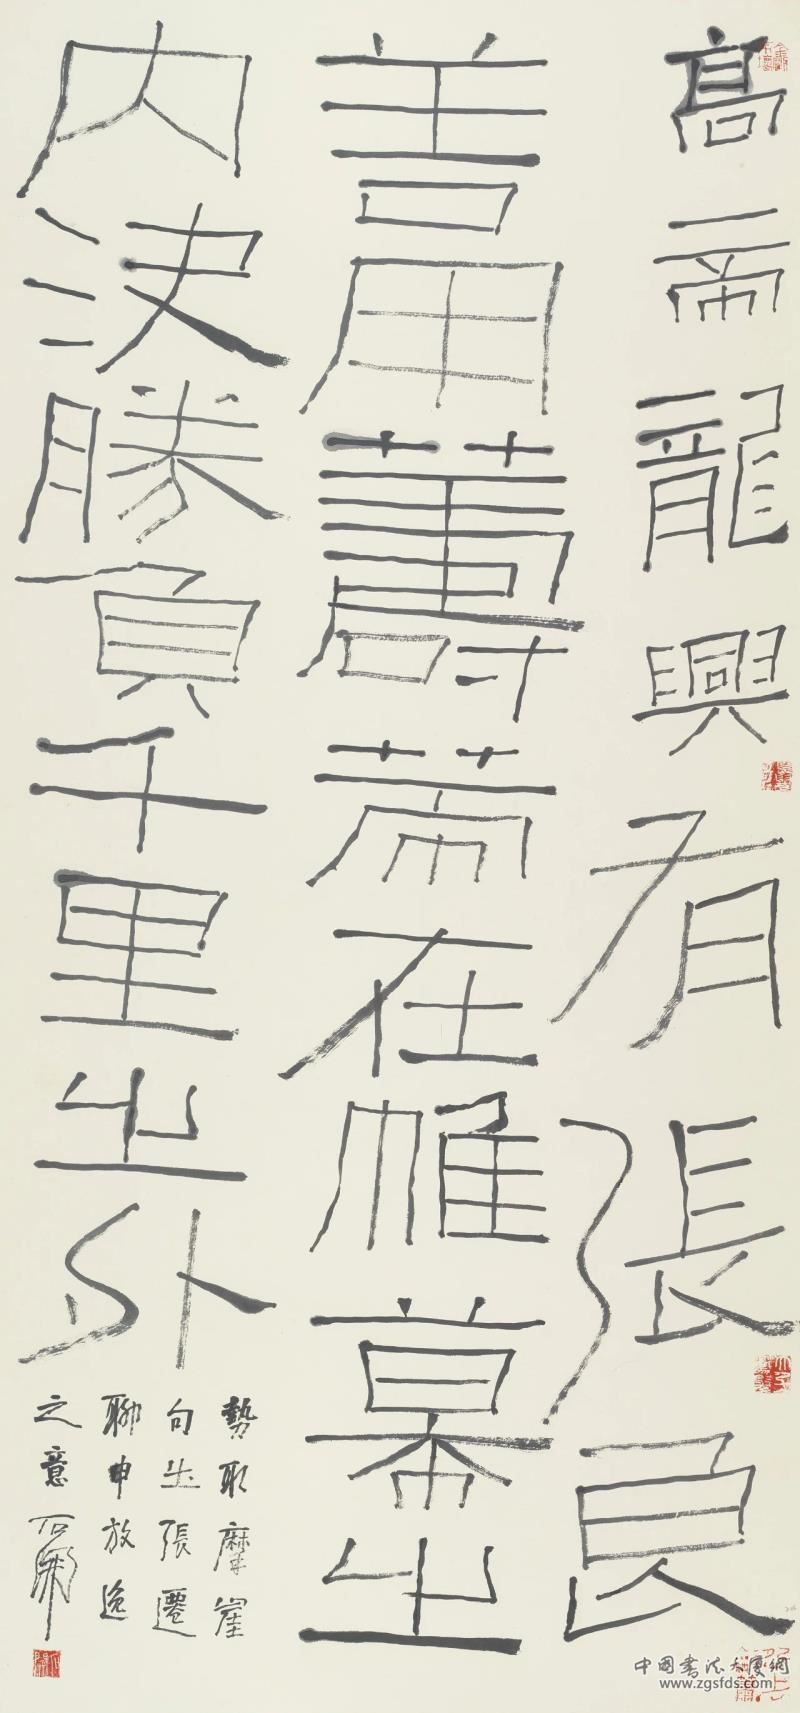 高帝龍興有張良
善用籌策在帷幕之
内決勝負千里之外
勢取摩崖
句出張遷
聊申放逸
之意 石開
中國書法大廈網
www.zgsfds.com